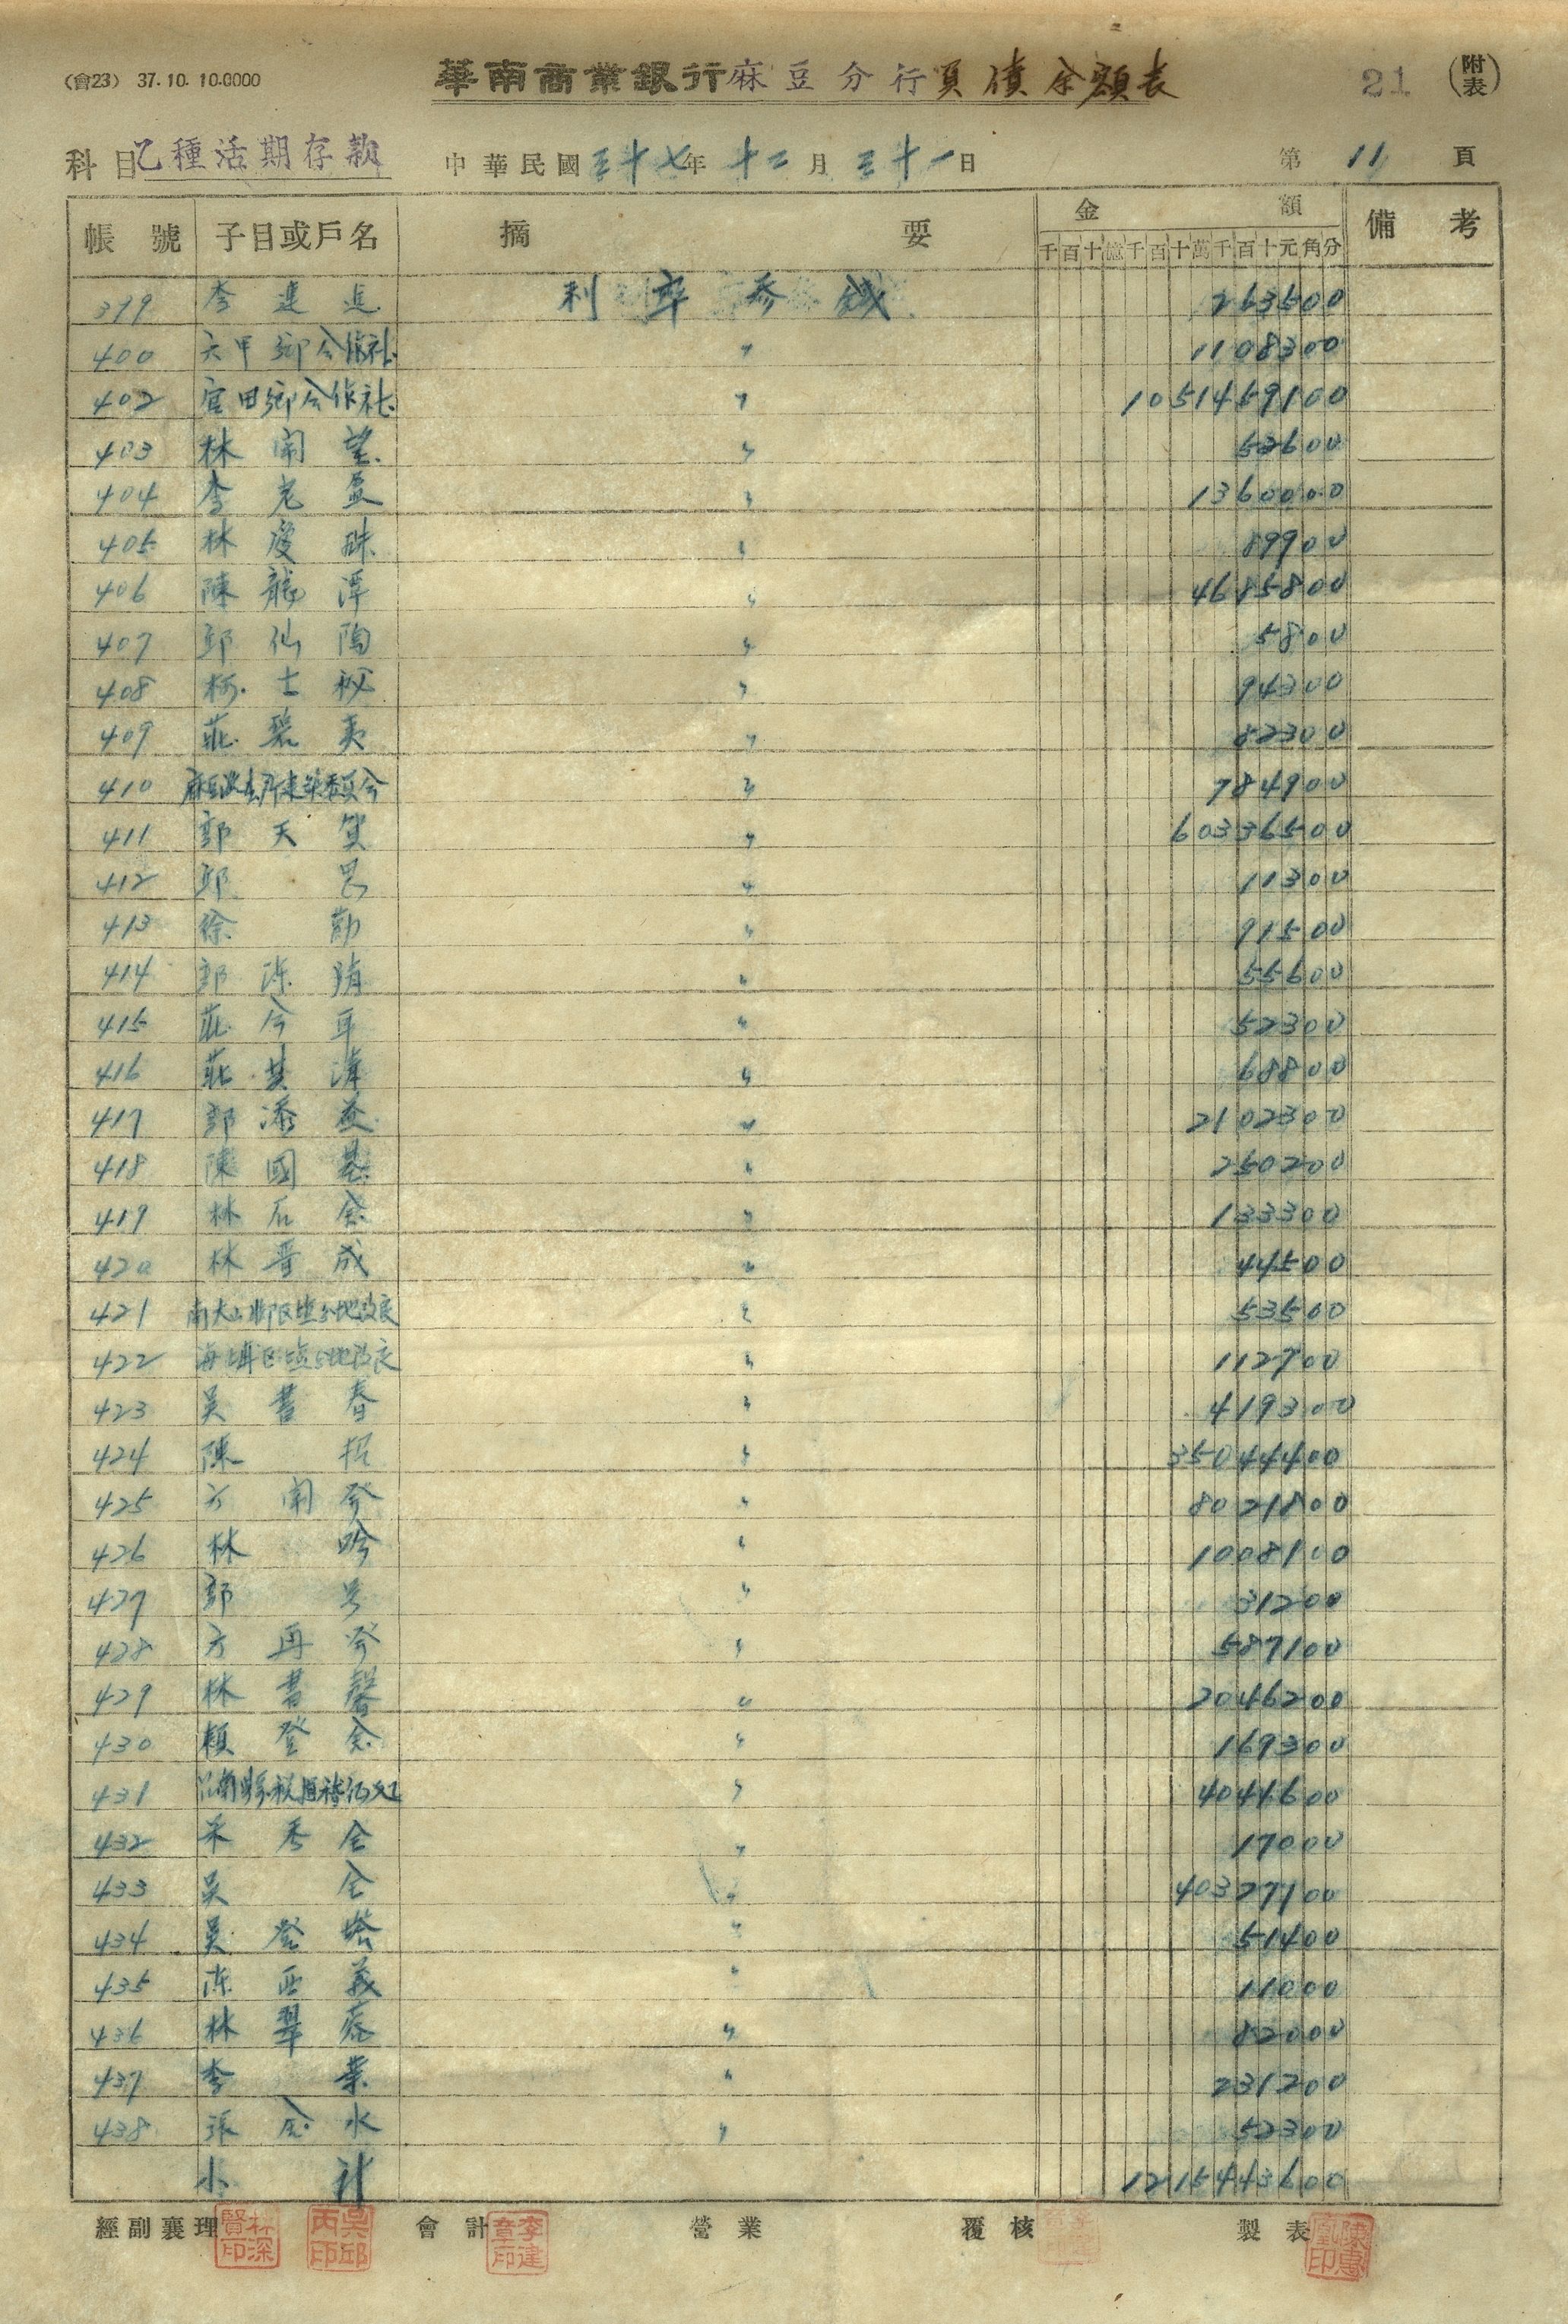 (會23) 37.10.10.0000
華南商業銀行麻豆分行負債余額表
21
(附表)
科目乙種活期存款
中華民國三十七年十二月三十一日
第11頁
帳號 子目或戶名 摘要 金額 備考
千百十億千百十萬千百十元角分
399 李進 利率參 263500
400 六甲鄉合作社 〃 1108300
402 官田鄉合作社 〃 1051459100
403 林開望 〃 52600
404 李老盈 〃 1360000
405 林慶 〃 89900
406 陳龍潭 〃 4685800
407 邱仙陶 〃 5800
408 柯士 〃 94300
409 莊碧 〃 82300
410 〃 784900
411 郭天賀 〃 60336500
412 邱 〃 11300
413 徐 〃 91500
414 郭 〃 55600
415 莊 〃 52300
416 莊其 〃 68800
417 郭添益 〃 2102300
418 陳國基 〃 250200
419 林石金 〃 133300
420 林晋成 〃 44500
421 〃 53500
422 〃 112700
423 吳書春 〃 419300
424 陳招 〃 35044400
425 方開發 〃 8021800
426 林吟 〃 1008100
427 郭 〃 31200
428 方再發 〃 587100
429 林書馨 〃 2046200
430 賴登 〃 169300
431 〃 4041600
432 秀全 〃 17000
433 吳全 〃 40327100
434 吳登塔 〃 51400
435 陳正義 〃 11000
436 林翠 〃 82000
437 李業 〃 231200
438 張金水 〃 52300
小計 1215443600
經副襄理 會計 營業 覆核 製表
林深賢印
吳邱丙印
李建章印
陳惠凰印